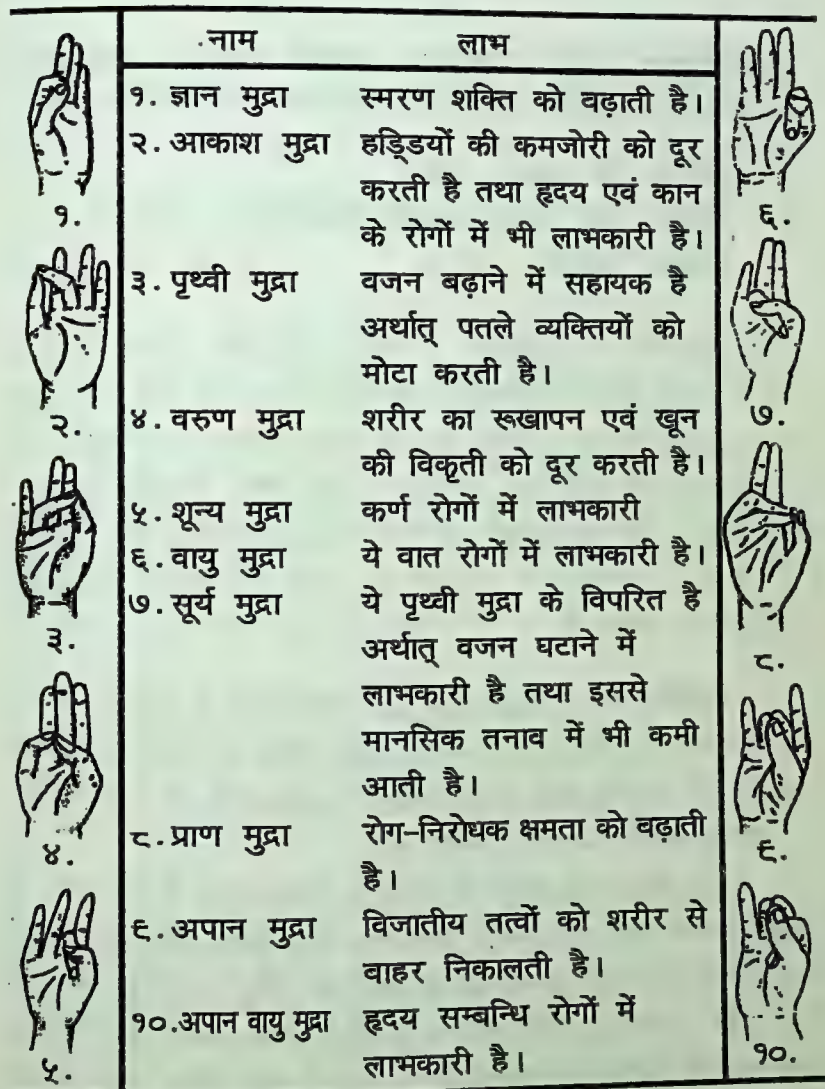 .नाम लाभ
१. ज्ञान मुद्रा स्मरण शक्ति को वढ़ाती है।
२. आकाश मुद्रा हड्डियों की कमजोरी को दूर
करती है तथा हृदय एवं कान
के रोगों में भी लाभकारी है।
३. पृथ्वी मुद्रा वजन बढ़ाने में सहायक है
अर्थात् पतले व्यक्तियों को
मोटा करती है।
४. वरुण मुद्रा शरीर का रूखापन एवं खून
की विकृती को दूर करती है।
५. शून्य मुद्रा कर्ण रोगों में लाभकारी
६. वायु मुद्रा ये वात रोगों में लाभकारी है।
७. सूर्य मुद्रा ये पृथ्वी मुद्रा के विपरित है
अर्थात् वजन घटाने में
लाभकारी है तथा इससे
मानसिक तनाव में भी कमी
आती है।
८. प्राण मुद्रा रोग-निरोधक क्षमता को वढ़ाती
है।
९. अपान मुद्रा विजातीय तत्वों को शरीर से
वाहर निकालती है।
१०. अपान वायु मुद्रा हृदय सम्बन्धि रोगों में
लाभकारी है।
१.
२.
३.
४.
५.
६.
७.
८.
९.
१०.